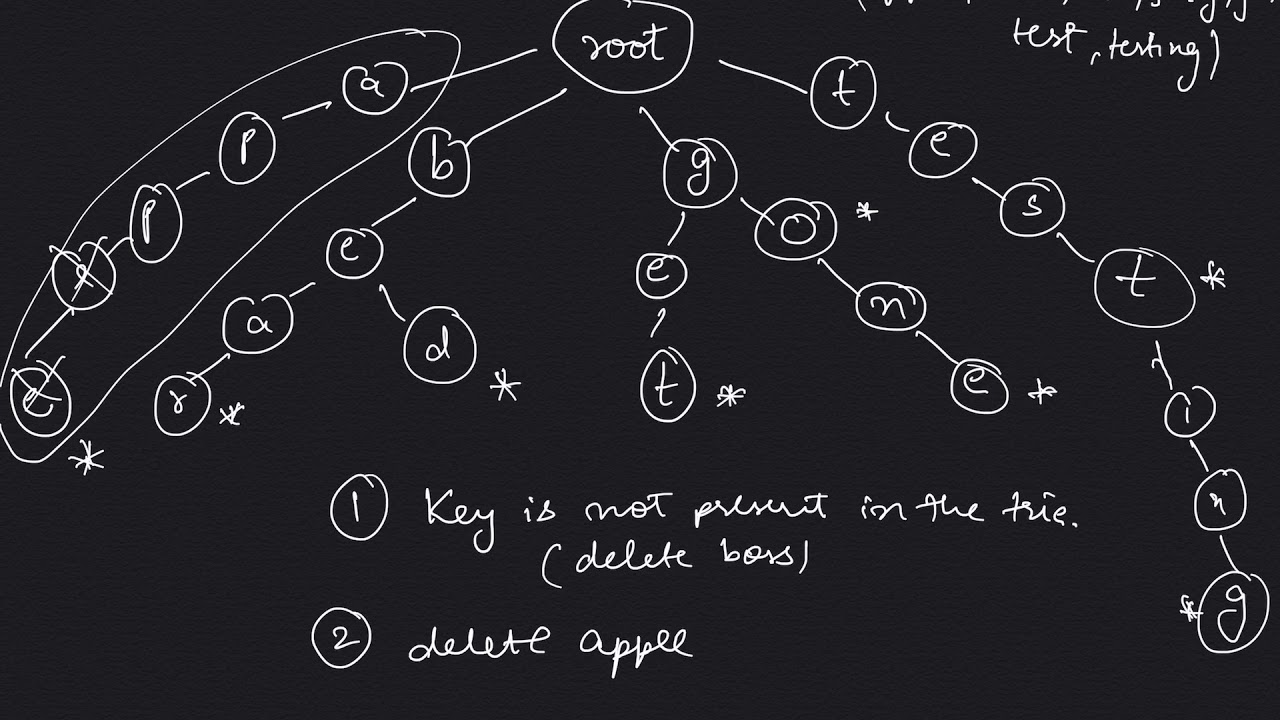 test, testing)
root
a
p
p
e
b
e
a
r
d
g
e
t
o
n
e
t
e
s
t
i
n
g
*
*
*
*
*
*
*
*
1 Key is not present in the trie.
(delete boss)
2 delete apple